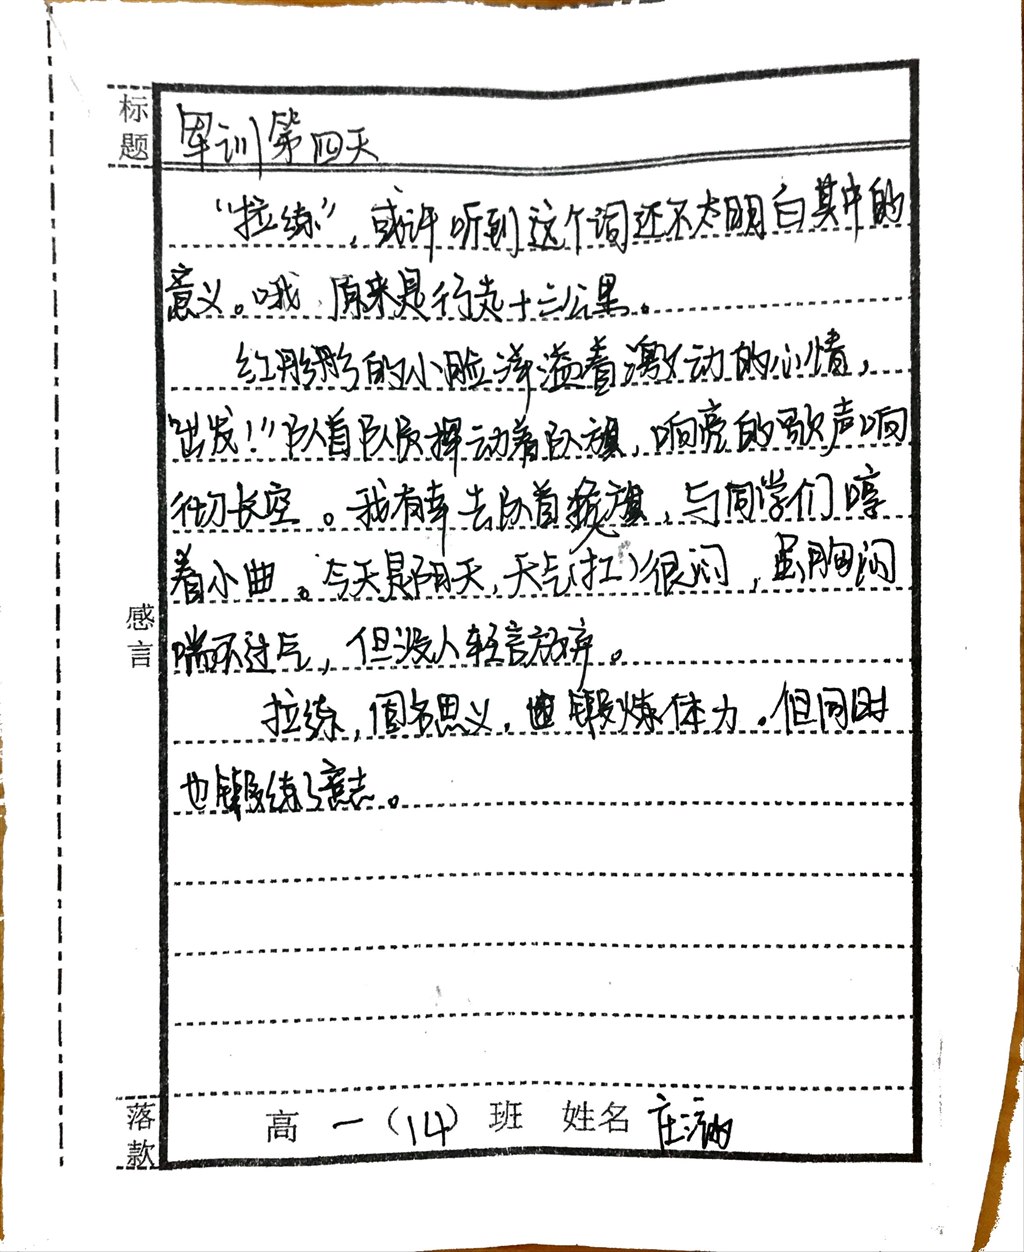 标题
军训第四天
“拉练”，或许听到这个词还不太明白其中的
意义。哦，原来是行走十三公里。
红彤彤的小脸洋溢着激动的心情，
“出发！”队首队员挥动着队旗，响亮的歌声响
彻长空。我有幸去队首扛旗，与同学们哼
着小曲。今天是阴天，天气(扛)很闷，虽胸闷
喘不过气，但没人轻言放弃。
拉练，固名思义，锻炼体力。但同时
也锻练了意志。
感言
落款
高一（14）班 姓名 庄